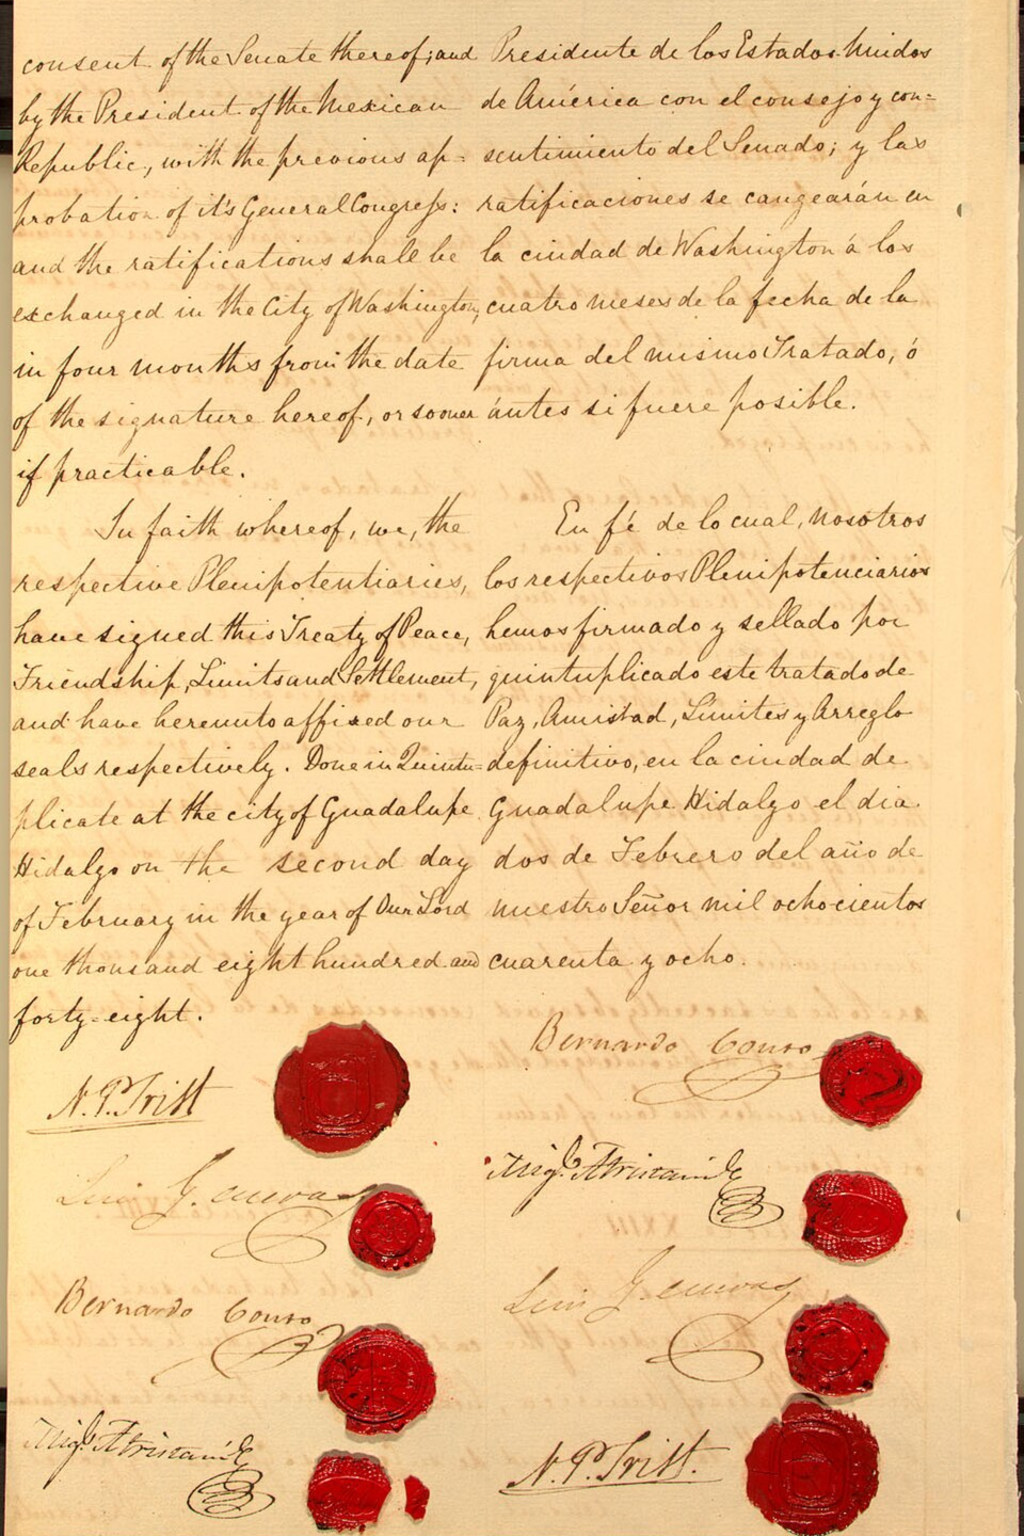 consent of the Senate thereof; and
by the President of the Mexican
Republic, with the previous ap=
probation of it's General Congress:
and the ratifications shall be
exchanged in the City of Washington,
in four months from the date
of the signature hereof, or sooner
if practicable.
In faith whereof, we, the
respective Plenipotentiaries,
have signed this Treaty of Peace,
Friendship, Limits and Settlement,
and have hereunto affixed our
seals respectively. Done in Quintu=
plicate at the city of Guadalupe
Hidalgo on the second day
of February in the year of Our Lord
one thousand eight hundred and
forty-eight.
N. P. Trist
Luis G. Cuevas
Bernardo Couto
Migl. Atristain
Presidente de los Estados Unidos
de América con el consejo y con=
sentimiento del Senado; y las
ratificaciones se cangearán en
la ciudad de Washington á los
cuatro meses de la fecha de la
firma del mismo Tratado, ó
ántes si fuere posible.
En fé de lo cual, nosotros
los respectivos Plenipotenciarios
hemos firmado y sellado por
quintuplicado este tratado de
Paz, Amistad, Límites y Arreglo
definitivo, en la ciudad de
Guadalupe Hidalgo el dia
dos de Febrero del año de
nuestro Señor mil ochocientos
cuarenta y ocho.
Bernardo Couto
Migl. Atristain
Luis G. Cuevas
N. P. Trist.